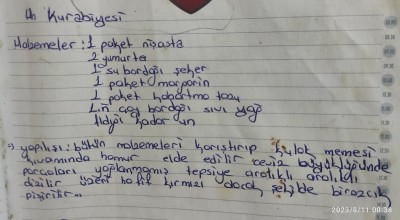 Un Kurabiyesi
Malzemeler : 1 paket nişasta
2 yumurta
1 su bardağı şeker
1 paket margarin
1 paket kabartma tozu
çay bardağı sıvı yağ
Aldığı kadar un
yapılışı : Bütün malzemeleri karıştırıp kulak memesi
kıvamında hamur elde edilir ceviz büyüklüğünde
parçaları yağlanmamış tepsiye aralıklı aralıklı
dizilir üzeri hafif kırmızı olarak şekilde birazcık
pişirilir...
2023/6/11 00:38